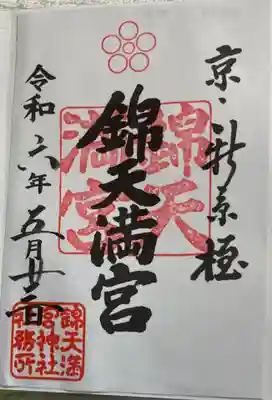 京・新京極
錦天
満宮
錦天満宮
令和六年五月廿
錦天満
宮神社
事務所